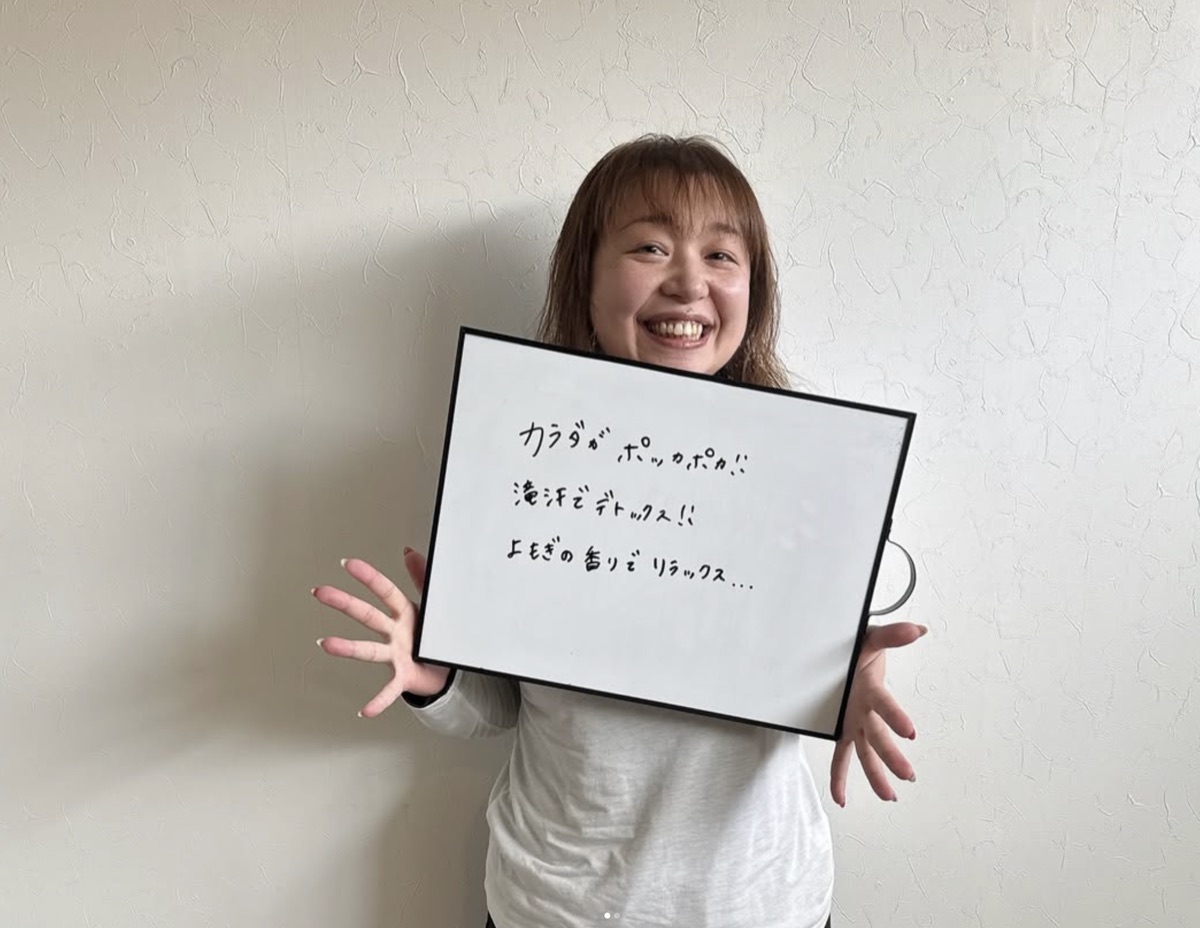 カラダが ポッカポカ!!
滝汗でデトックス!!
よもぎの香りで リラックス...